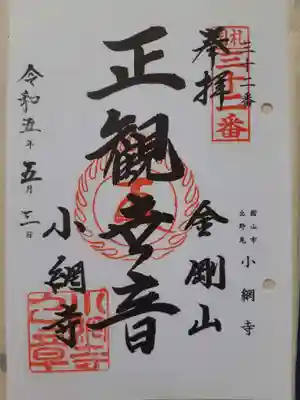 三十二番
札三十二番
奉拝
正観世音
金剛山
小網寺
館山市
出野尾
小網寺
令和五年五月三日
小網寺
之章